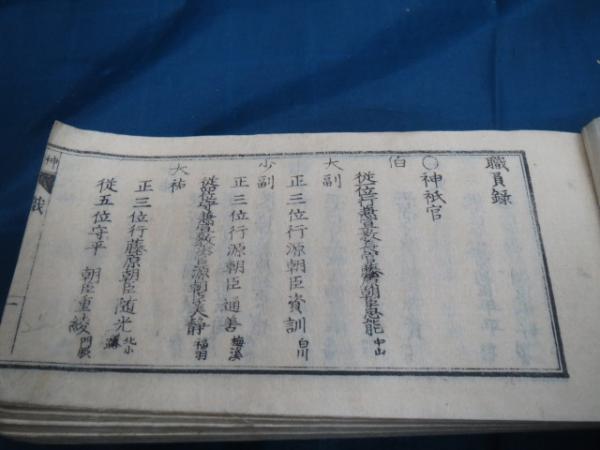 職員録
〇神祇官
伯
従一位行
藤朝臣忠能 中山
大副
正三位行源朝臣資訓 白川
少副
正三位行源朝臣通善 梅溪
源朝臣美静 福羽
大祐
正三位行藤原朝臣随光 北小
従五位守平 朝臣重綾 門脇
神
一